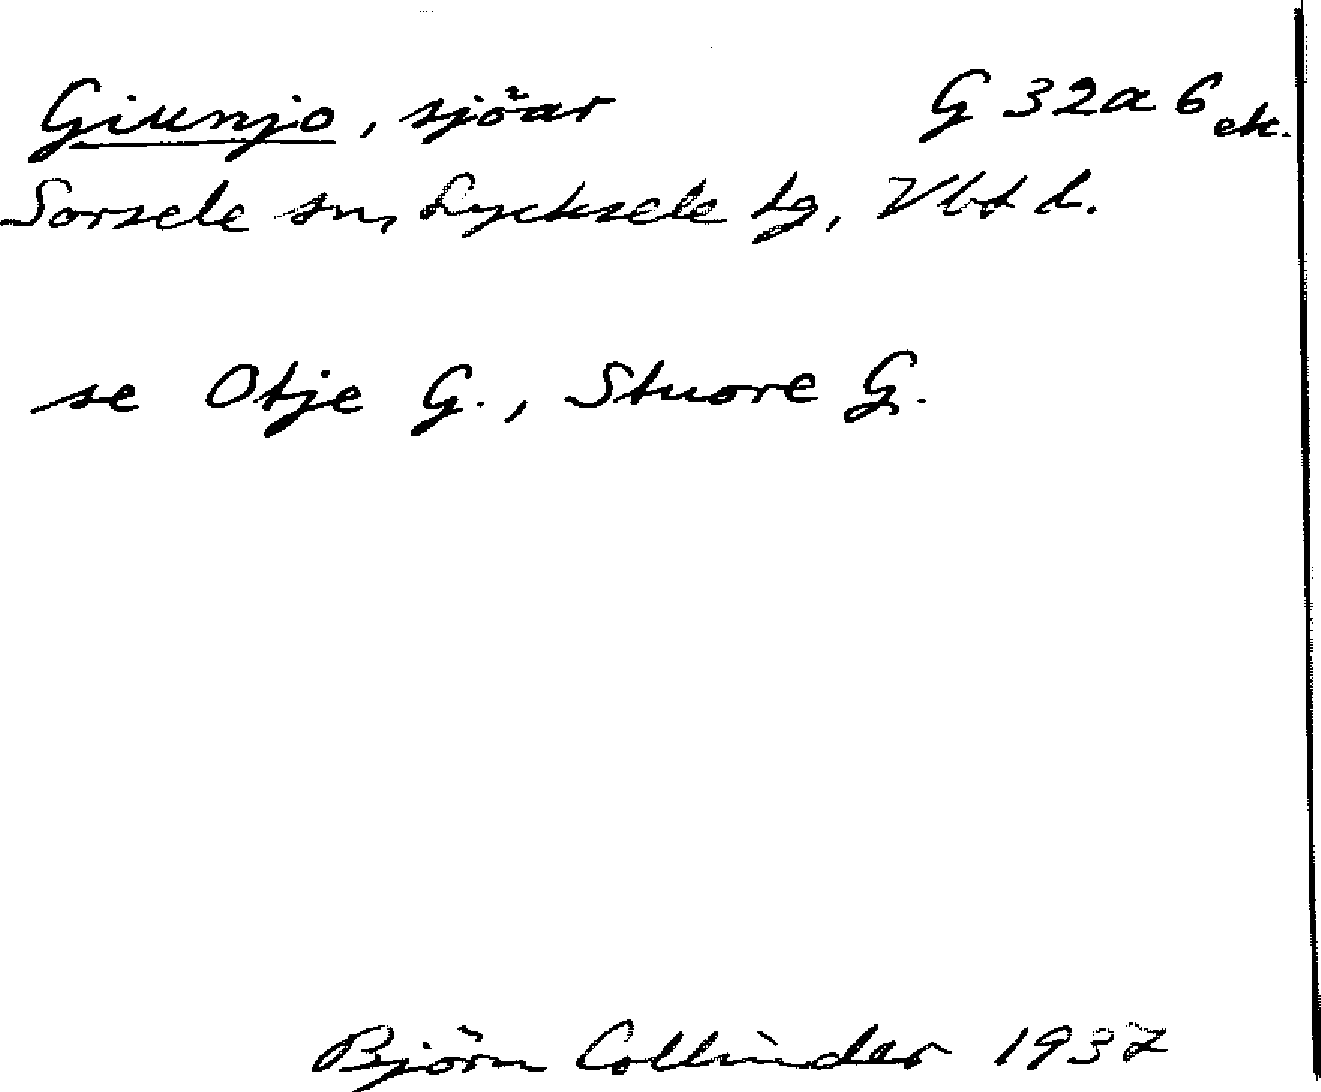 Giunjo, sjöar G 32a 6 ek.
Sorsele sn, Lycksele lg, Vbt l.
se Otje G., Stuore G.
Björn Collinder 1937